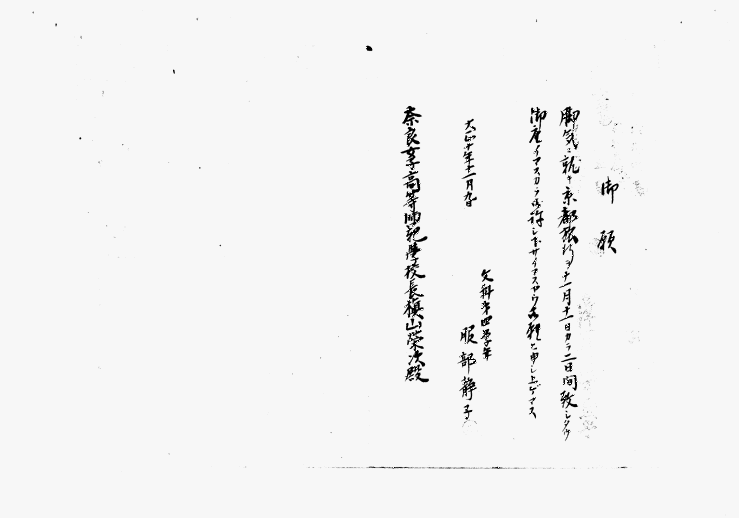 御願
脚気ニ就キ京都旅行ヲ十一月十一日カラ二日間致シタイ
御座イマスカラ御許シ下サイマスヤウ御願ヒ申し上ゲマス
文科第四学年
服部静子
大正十年十一月九日
奈良女子高等師範學校長槇山榮次殿